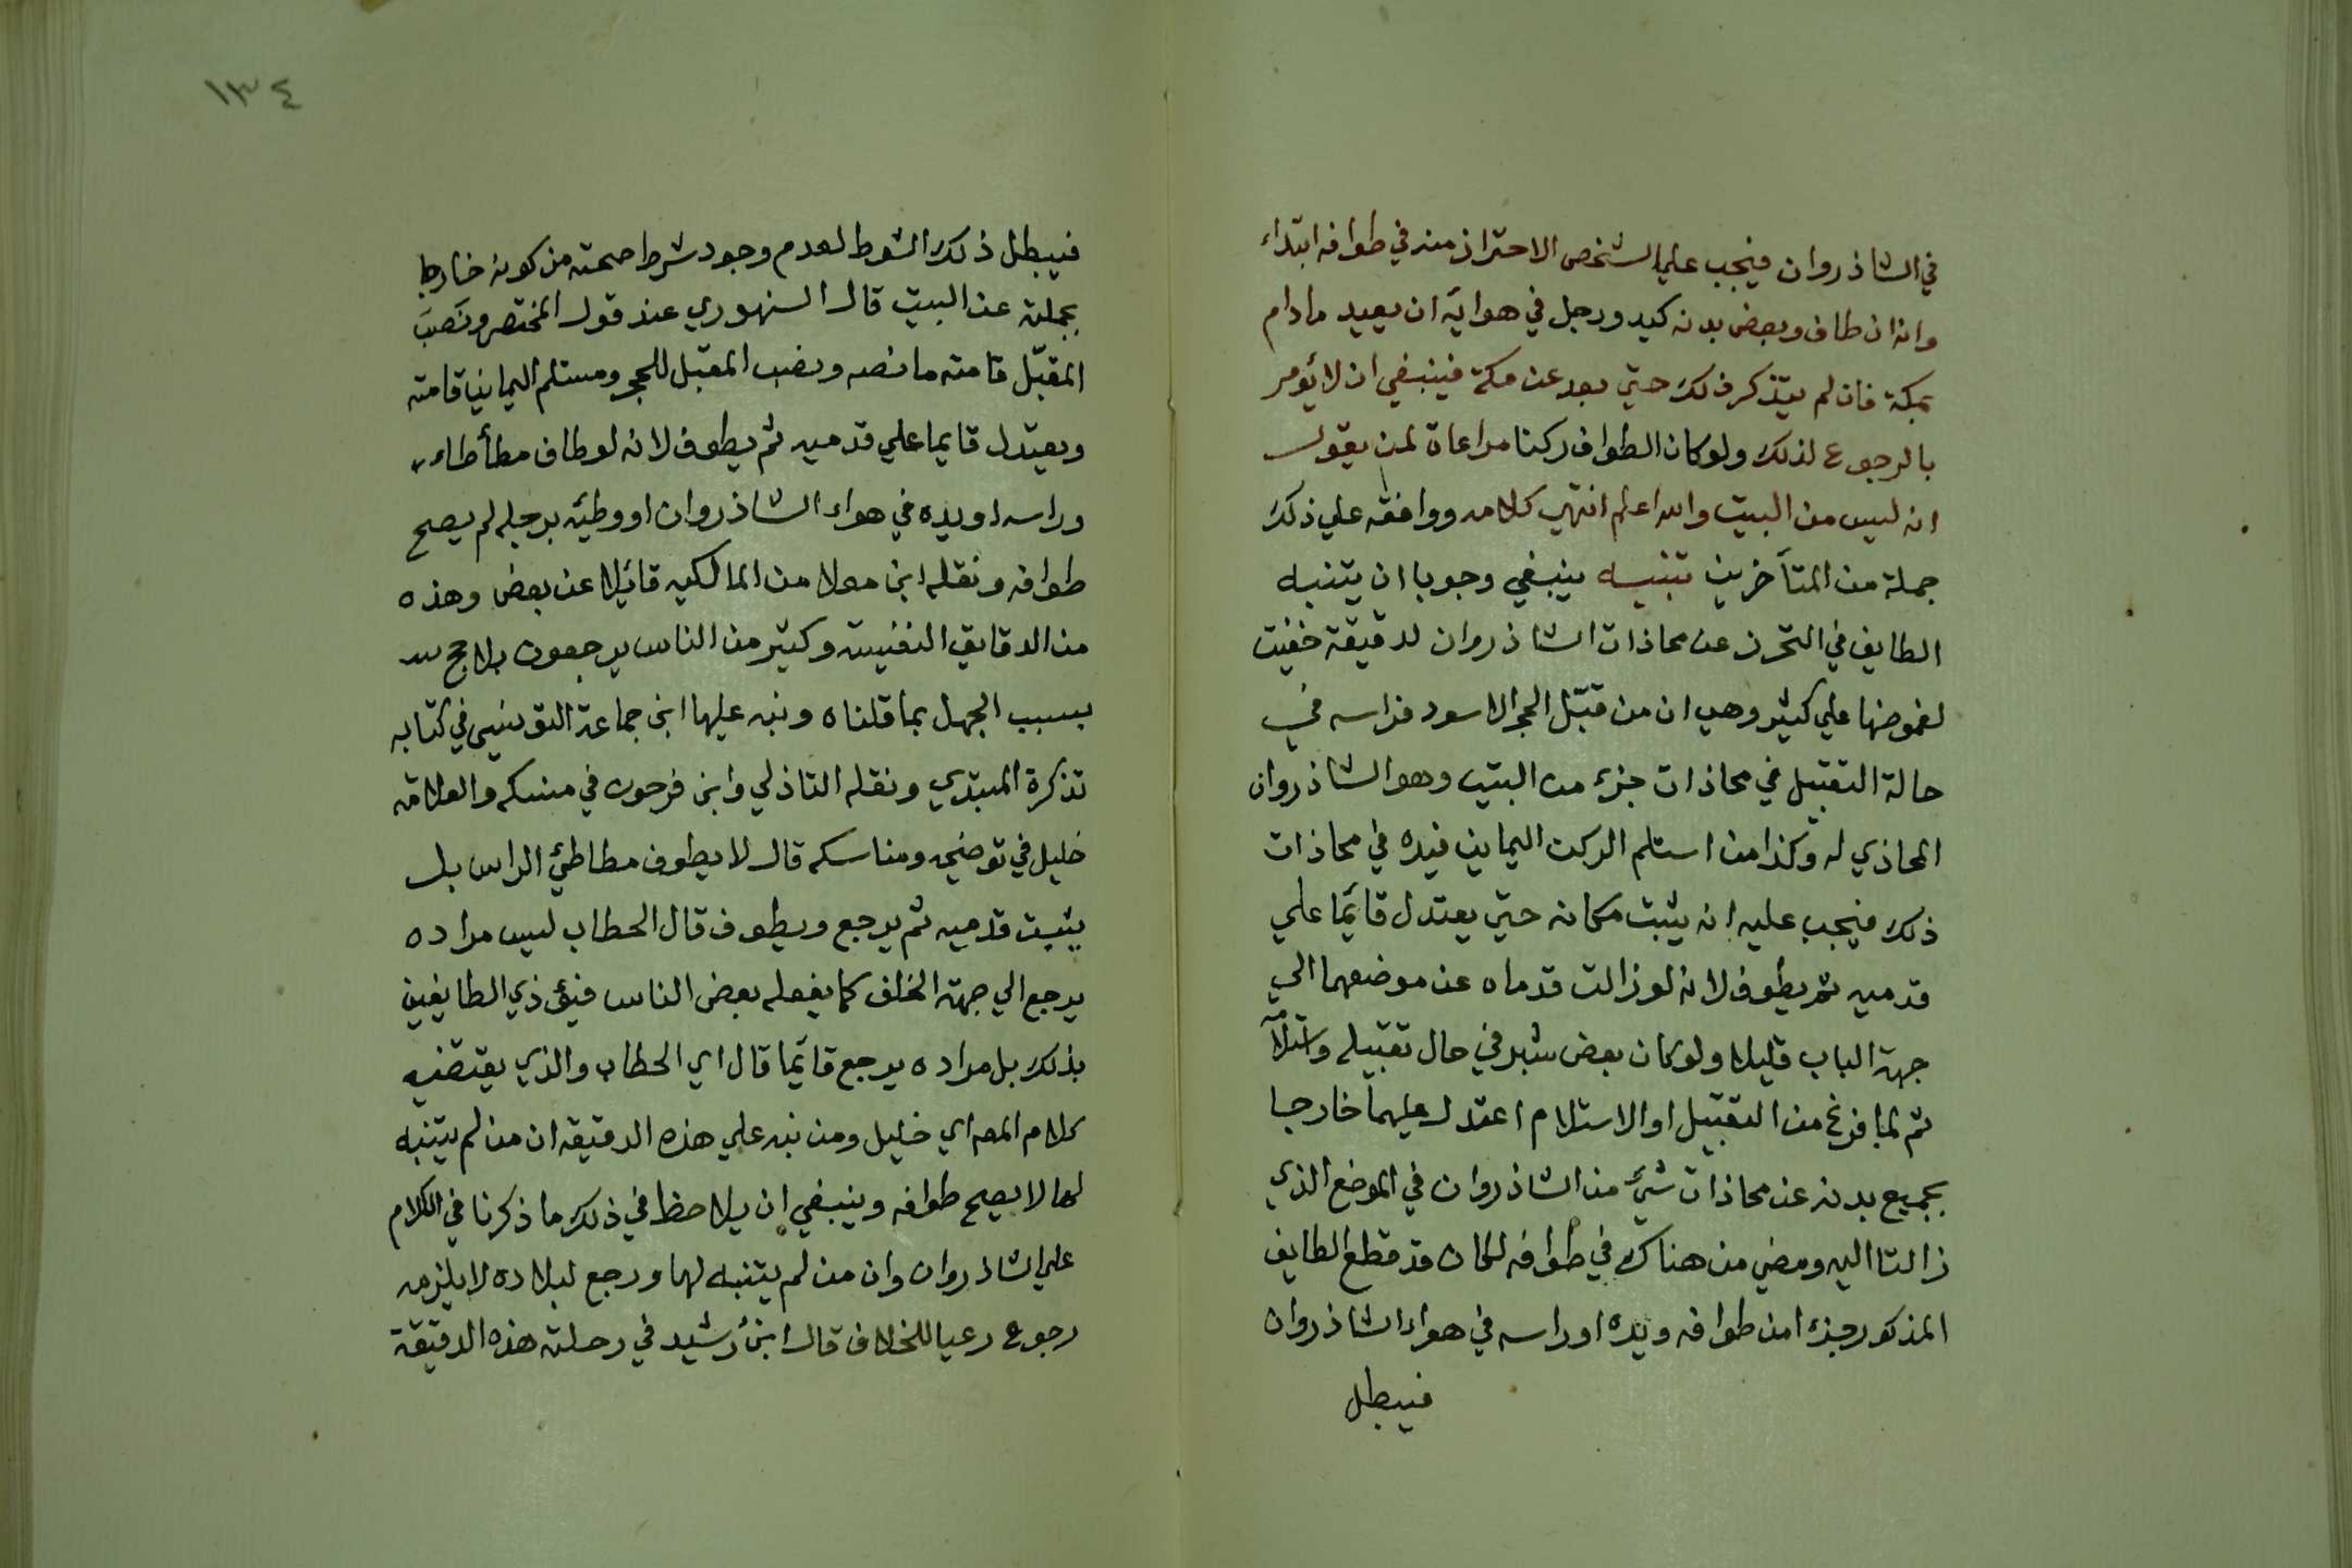 في الشاذروان فيجب علي الشخص الاحتراز منه في طوافه ابتداء
وانه ان طاف وبعض بدنه كيد ورجل في هوائه ان يعيد مادام
بمكة فان لم يتذكر ذلك حتي بعد عن مكة فينبغي ان لا يؤمر
بالرجوع لذلك ولو كان الطواف ركنا مراعاة لمن يقول
انه ليس من البيت والله اعلم انتهي كلامه ووافقه علي ذلك
جملة من المتأخرين تنبيه ينبغي وجوبا ان يتنبه
الطايف في التحرز عن محاذات الشاذروان لدقيقة خفيت
لغموضها علي كثير وهي ان من قبّل الحجر الاسود فراسه في
حالة التقبيل في محاذات جزء من البيت وهو الشاذروان
المحاذي له وكذا من استلم الركن اليماني فيده في محاذات
ذلك فيجب عليه انه يثبت مكانه حتي يعتدل قائما علي
قدميه ثم يطوف لانه لو زالت قدماه عن موضعهما الي
جهة الباب قليلا ولو كان بعض شبر في حال تقبيله واستلامه
ثم لما فرغ من التقبيل او الاستلام اعتدل عليهما خارجا
بجميع بدنه عن محاذات شيئ من الشاذروان في الموضع الذي
زالتا اليه ومضي من هناك في طوافه لكان قد قطع الطايف
المذكور جزءا من طوافه ويده او راسه في هواء الشاذروان
فيبطل
١٣٤
فيبطل ذلك الشوط لعدم وجود شرط صحته من كونه خارجا
بجملته عن البيت قال السنهوري عند قول المختصر ونَصبَ
المقبّل قامته ما نصه ونصب المقبّل للحجر ومستلم اليماني قامته
ويعتدل قايما علي قدميه ثم يطوف لانه لو طاف مطأطاء
وراسه او يده في هواء الشاذروان او وطئه برجله لم يصح
طوافه ونقله ابن معلا من المالكيه قائلا عن بعض وهذه
من الدقايق النفيسة وكثير من الناس يرجعون بلا حج
بسبب الجهل بما قلناه ونبه عليها ابن جماعة التونسي في كتابه
تذكرة المبتدي ونقله التاذلي وابن فرحون في منسكه والعلامه
خليل في توضيحه ومناسكه قال لا يطوف مطاطئ الراس بل
يثبت قدميه ثم يرجع ويطوف قال الحطاب ليس مراده
يرجع الي جهة الخلف كما يفعله بعض الناس فيؤذي الطايفين
بذلك بل مراده يرجع قائما قال اي الحطاب والذي يقتضيه
كلام المص اي خليل ومن نبه علي هذه الدقيقه ان من لم يتنبه
لها لا يصح طوافه وينبغي ان يلاحظ في ذلك ما ذكرنا في الكلام
علي الشاذروان وان من لم يتنبه لها ورجع لبلاده لا يلزمه
رجوع رعيا للخلاف قال ابن رشيد في رحلته هذه الدقيقة